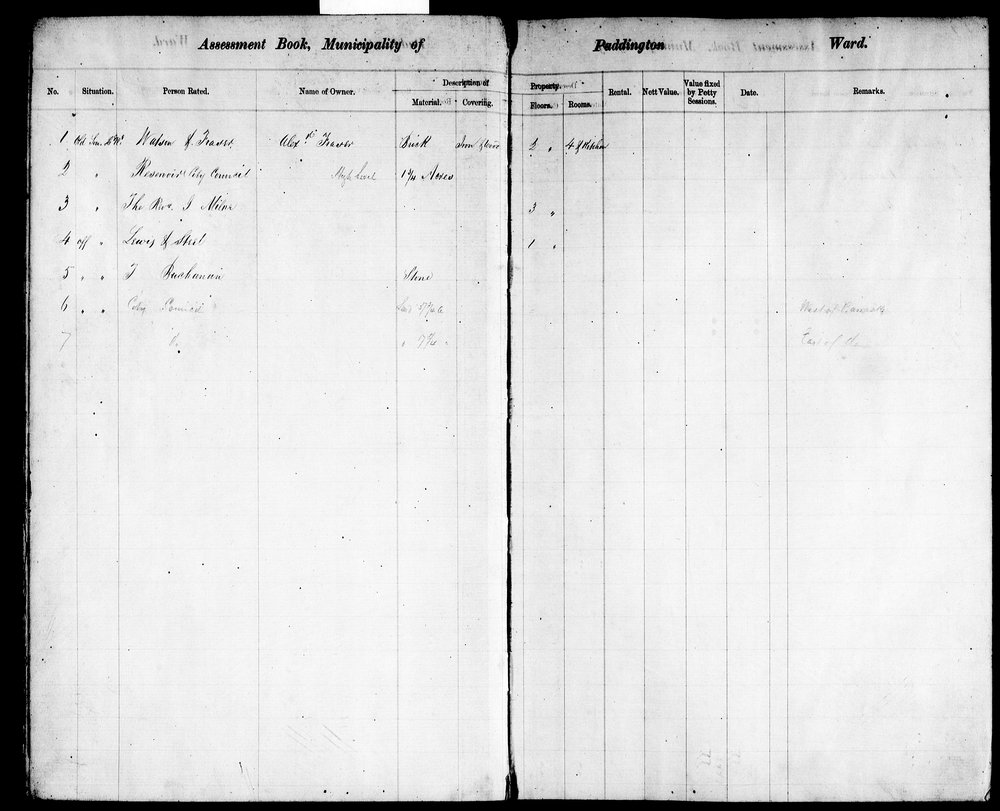 Assessment Book, Municipality of Paddington Ward.
No. Situation. Person Rated. Name of Owner. Description of Property. Rental. Nett Value. Value fixed by Petty Sessions. Date. Remarks.
Material. Covering. Floors. Rooms.
1 Old Watson & Fraser Alex Fraser Brick Iron 2 " 4 & Kitchen
2 " Reservoir City Council High Level 1 1/4 Acres
3 " The Rev. J Milne 3 "
4 off " Lewis & Steel 1 "
5 " " J Buchanan Stone
6 " " City Council Land West of
7 Do " 7 East of Do